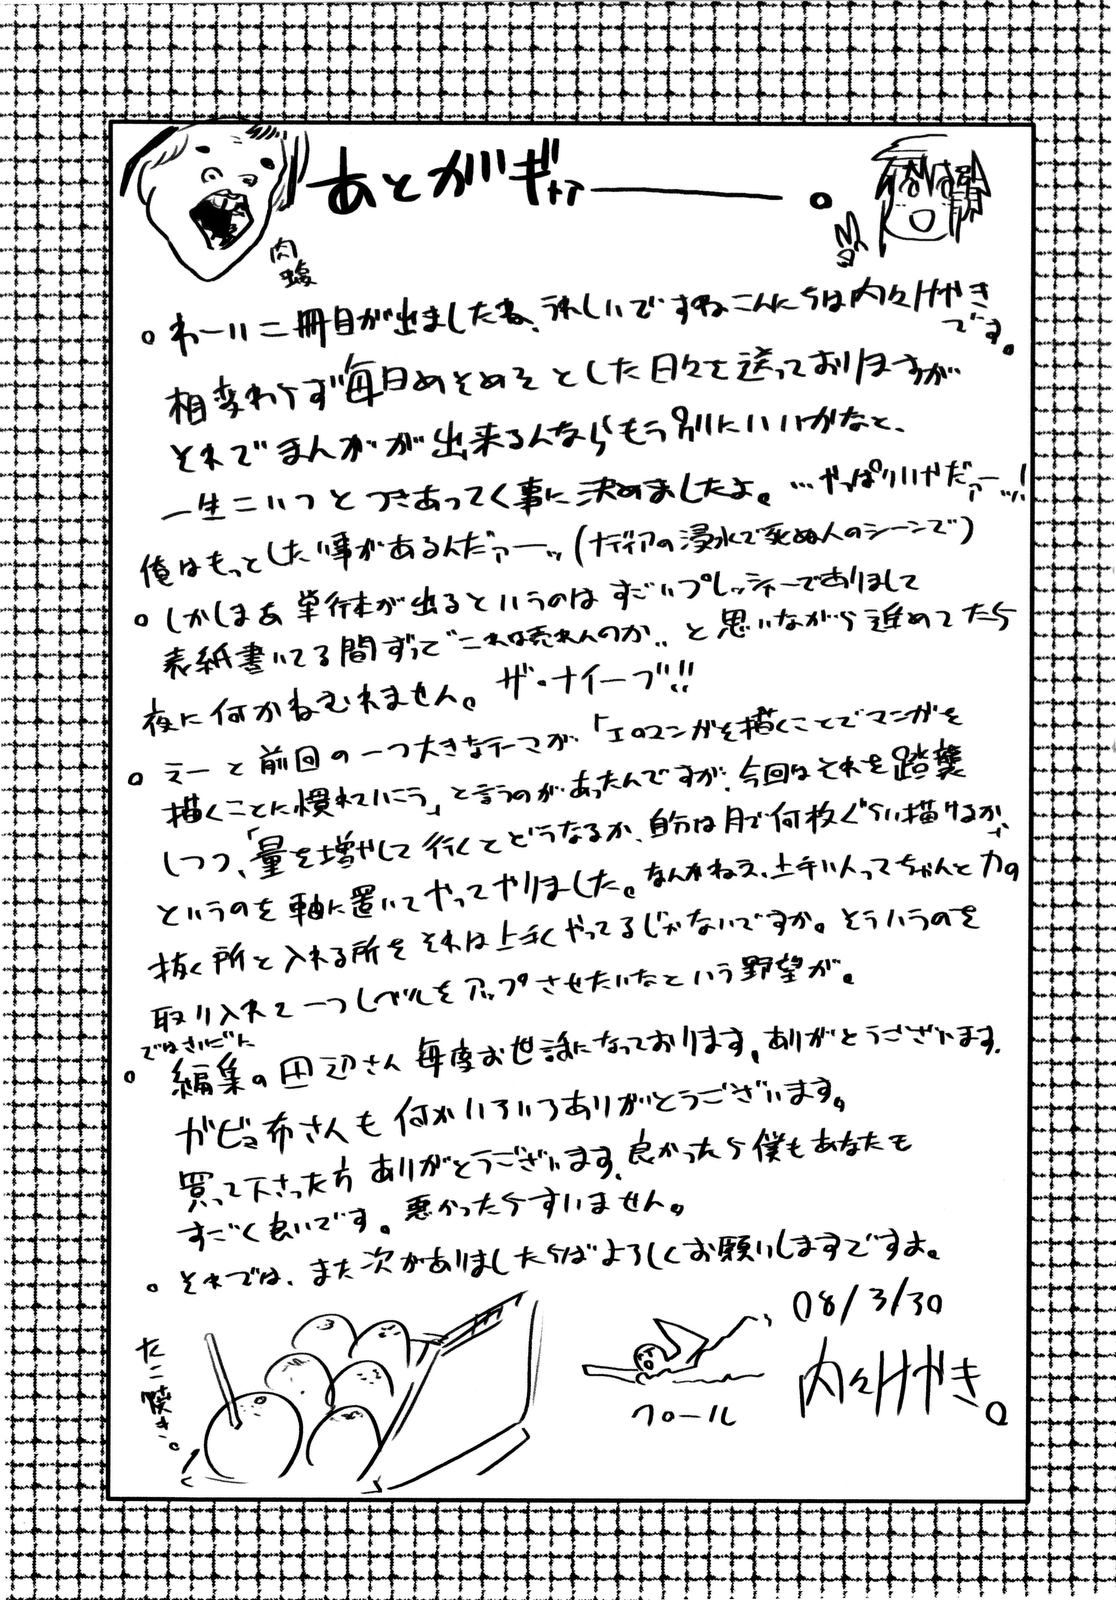 あとがギャァ――――。
肉
。わーい二冊目が出ましたね、うれしいですねこんにちは内々けやき
です。
相変わらず毎日めそめそとした日々を送っておりますが
それでまんがが出来るんならもう別にいいかなと、
一生こいつとつきあってく事に決めましたよ。…やっぱりいやだァーッ!
俺はもっとしたい事があるんだァーッ(ナディアの浸水で死ぬ人のシーンで)
。しかしまあ単行本が出るというのはすごいプレッシャーでありまして
表紙書いてる間ずっで"これは売れんのか"と思いながら進めてたら
夜に何かねむれません。ザ・ナイーブ!!
。えーと前回の一つ大きなテーマが「エロマンガを描くことでマンガを
描くことに慣れていこう」と言うのがあったんですが、今回はそれを踏襲
しつつ、「量を増やして行くとどうなるか、自分は月で何枚ぐらい描けるか」
というのを軸に置いてやってやりました。なんかねえ、上手い人ってちゃんと力の
抜く所と入れる所をそれは上手くやってるじゃないですか。そういうのを
取り入れて一つレベルをアップさせたいなという野望が。
ではさいごに
。編集の田辺さん毎度お世話になっております。ありがとうございます。
ガビョ布さんも何かいろいろありがとうございます。
買って下さった方ありがとうございます、良かったら僕もあなたも
すごく良いです。悪かったらすいません。
。それでは、また次がありましたらばよろしくお願いしますですよ。
08/3/30
内々けやき。
たこ焼き。
クロール